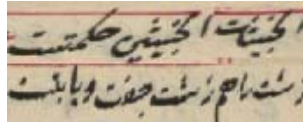 الخبیثات الخبیثین حکمتست
زشت را هم زشت جفت و بابتست